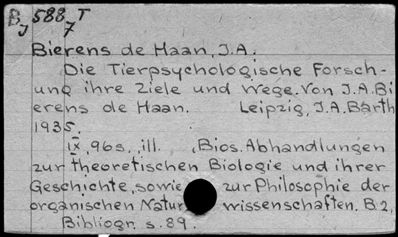 B 588 T
J 7
Bierens de Haan, J.A.
Die Tierpsychologische Forsch-
ung ihre Ziele und Wege. Von J.A. Bi
erens de Haan. Leipzig, J.A. Barth
1935.
IX, 96s., ill. (Bios. Abhandlungen
zur theoretischen Biologie und ihrer
Geschichte, sowie zur Philosophie der
organischen Natur wissenschaften. B.2,
Bibliogr. s. 89.